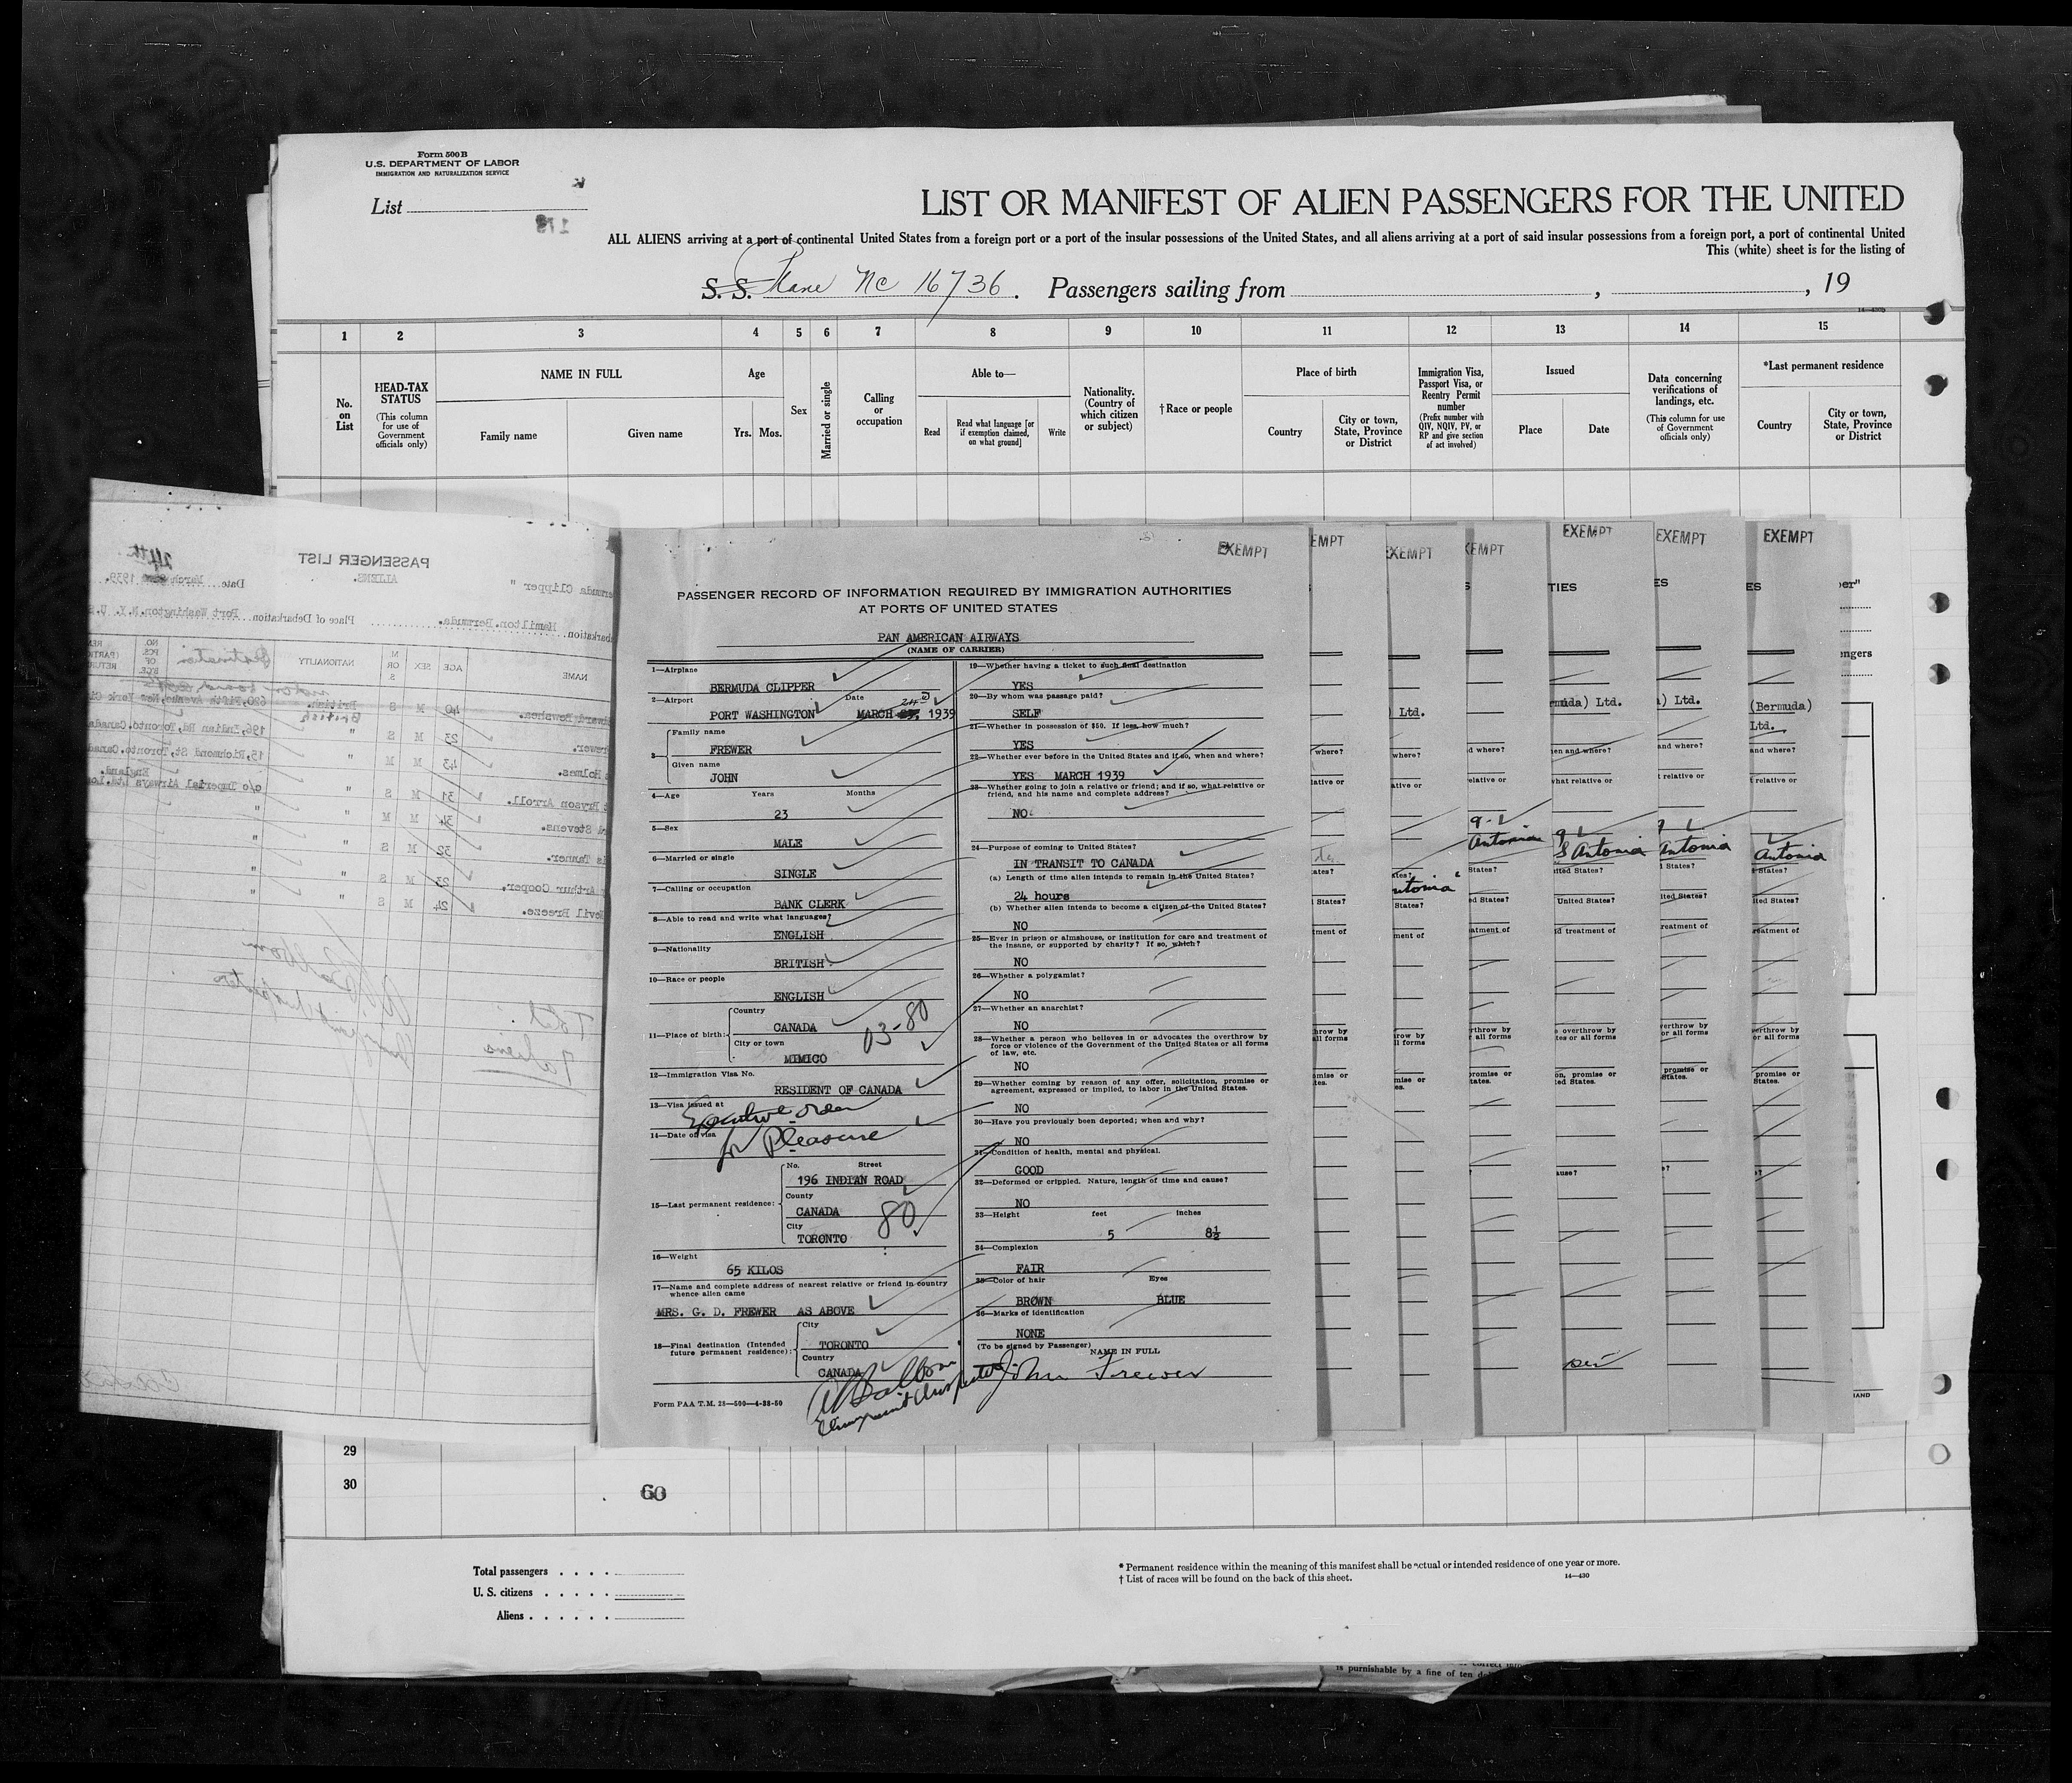 Form 500B
U.S. DEPARTMENT OF LABOR
IMMIGRATION AND NATURALIZATION SERVICE
List
LIST OR MANIFEST OF ALIEN PASSENGERS FOR THE UNITED
ALL ALIENS arriving at a port of continental United States from a foreign port or a port of the insular possessions of the United States, and all aliens arriving at a port of said insular possessions from a foreign port, a port of continental United
This (white) sheet is for the listing of
S. S. Plane NC 16736. Passengers sailing from , , 19
1 2 3 4 5 6 7 8 9 10 11 12 13 14 15
No. on List
HEAD-TAX STATUS
(This column for use of Government officials only)
NAME IN FULL
Family name
Given name
Age
Yrs. Mos.
Sex
Married or single
Calling or occupation
Able to—
Read
Read what language [or if exemption claimed, on what ground]
Write
Nationality. (Country of which citizen or subject)
†Race or people
Place of birth
Country
City or town, State, Province or District
Immigration Visa, Passport Visa, or Reentry Permit number
(Prefix number with QIV, NQIV, PV, or RP and give section of act involved)
Issued
Place
Date
Data concerning verifications of landings, etc.
(This column for use of Government officials only)
*Last permanent residence
Country
City or town, State, Province or District
PASSENGER LIST
ALIENS.
Date March 24th 1939.
Hamilton. Bermuda.
Place of Debarkation Port Washington. N.Y. U.S.
NAME
AGE
SEX
M OR S
NATIONALITY
Destination
NO. PCS. OF BGE.
40 M S British. 620, Fifth Avenue, New York
23 M S " 196, Indian Rd, Toronto. Canada
Holmes. 43 M M " 15, Richmond St, Toronto.
Bryson Arroll. 31 M S " c/o Imperial Airways Ltd. England.
Stevens. 34 M M "
Tanner. 32 M S "
Arthur Cooper. 23 M S "
Nevil Breeze. 24 M S "
EXEMPT
PASSENGER RECORD OF INFORMATION REQUIRED BY IMMIGRATION AUTHORITIES
AT PORTS OF UNITED STATES
PAN AMERICAN AIRWAYS
(NAME OF CARRIER)
1—Airplane
BERMUDA CLIPPER
2—Airport Date
PORT WASHINGTON MARCH 24 1939
3—Family name
FREWER
Given name
JOHN
4—Age Years Months
23
5—Sex
MALE
6—Married or single
SINGLE
7—Calling or occupation
BANK CLERK
8—Able to read and write what languages?
ENGLISH
9—Nationality
BRITISH
10—Race or people
ENGLISH
11—Place of birth:
Country
CANADA
City or town
MIMICO
03-80
12—Immigration Visa No.
RESIDENT OF CANADA
13—Visa issued at
Executive order
14—Date of visa
for Pleasure
15—Last permanent residence:
No. Street
196 INDIAN ROAD
County
CANADA
City
TORONTO
80
16—Weight
65 KILOS
17—Name and complete address of nearest relative or friend in country whence alien came
MRS. G. D. FREWER AS ABOVE
18—Final destination (Intended future permanent residence):
City
TORONTO
Country
CANADA
Form PAA T.M. 28—500—4-38-50
19—Whether having a ticket to such final destination
YES
20—By whom was passage paid?
SELF
21—Whether in possession of $50. If less, how much?
YES
22—Whether ever before in the United States and if so, when and where?
YES MARCH 1939
23—Whether going to join a relative or friend; and if so, what relative or friend, and his name and complete address?
NO
24—Purpose of coming to United States?
IN TRANSIT TO CANADA
(a) Length of time alien intends to remain in the United States?
24 hours
(b) Whether alien intends to become a citizen of the United States?
NO
25—Ever in prison or almshouse, or institution for care and treatment of the insane, or supported by charity? If so, which?
NO
26—Whether a polygamist?
NO
27—Whether an anarchist?
NO
28—Whether a person who believes in or advocates the overthrow by force or violence of the Government of the United States or all forms of law, etc.
NO
29—Whether coming by reason of any offer, solicitation, promise or agreement, expressed or implied, to labor in the United States.
NO
30—Have you previously been deported; when and why?
NO
31—Condition of health, mental and physical.
GOOD
32—Deformed or crippled. Nature, length of time and cause?
NO
33—Height feet inches
5 8½
34—Complexion
FAIR
35—Color of hair Eyes
BROWN BLUE
36—Marks of identification
NONE
(To be signed by Passenger) NAME IN FULL
John Frewer
EMPT EXEMPT EXEMPT EXEMPT EXEMPT EXEMPT
) Ltd.
(Bermuda) Ltd.
Antonia
S Antonia
Antonia
Antonia
29
30
60
Total passengers
U. S. citizens
Aliens
* Permanent residence within the meaning of this manifest shall be actual or intended residence of one year or more.
† List of races will be found on the back of this sheet.
14—430
is punishable by a fine of ten